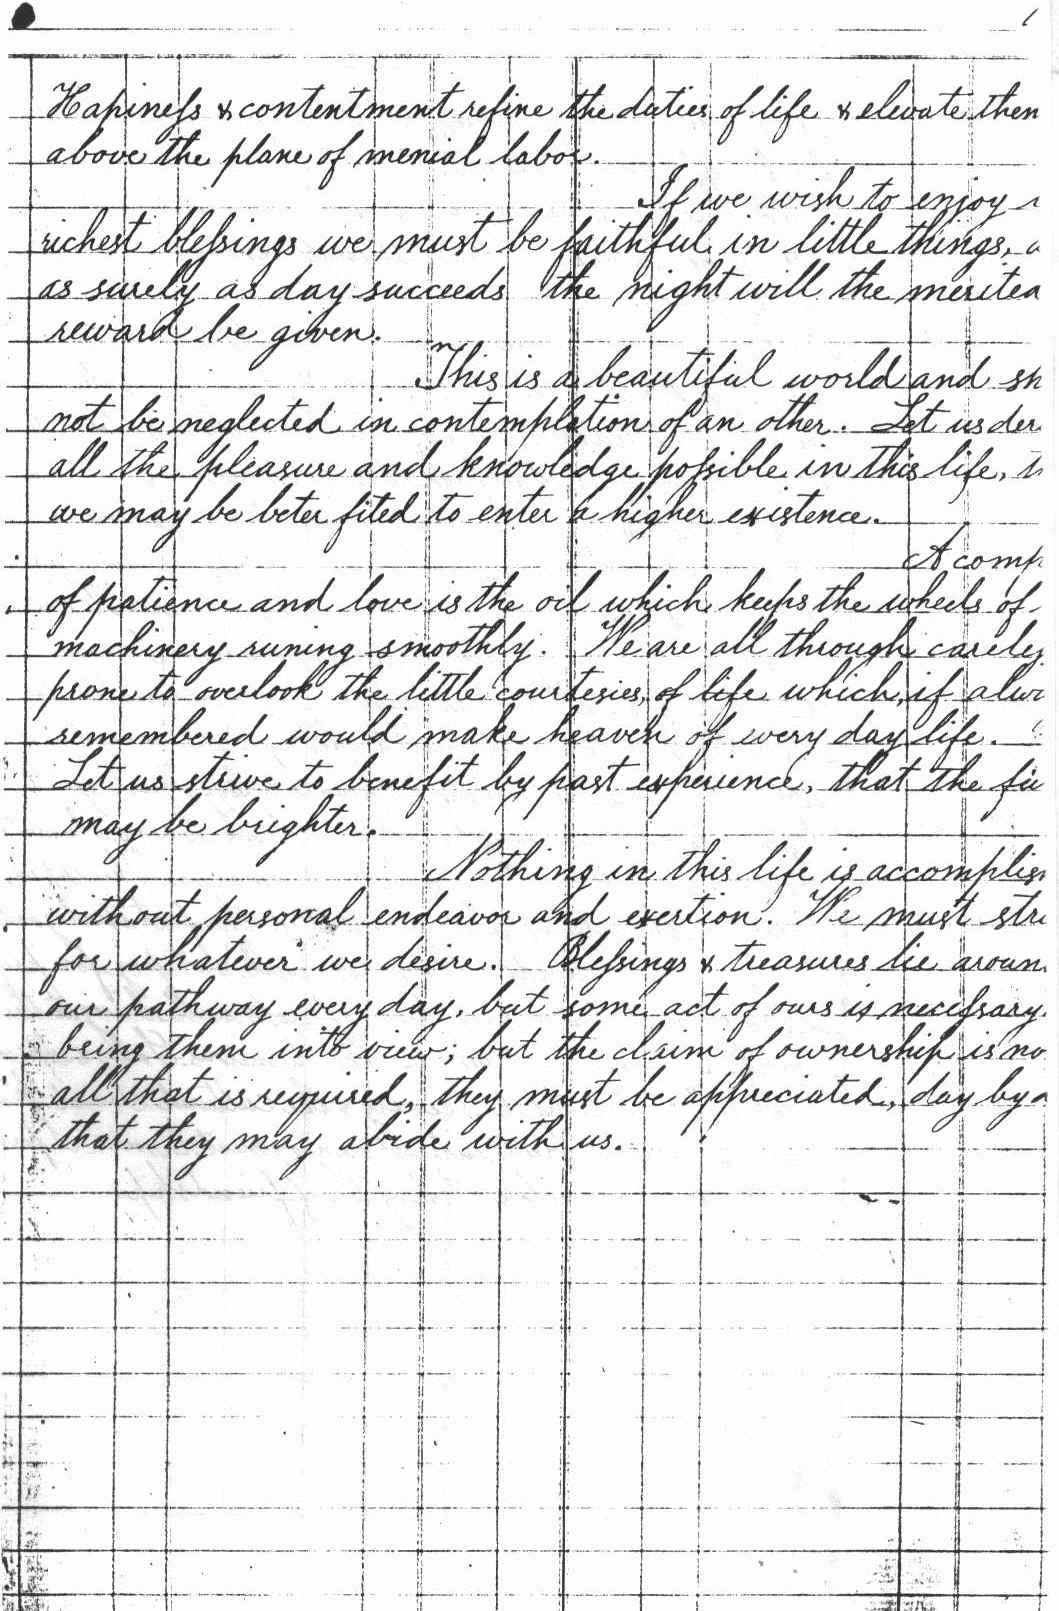 Hapineſs & contentment refine the duties of life & elevate them
above the plane of menial labor.
If we wish to enjoy
richest bleſsings we must be faithful in little things,
as surely as day succeeds the night will the merited
reward be given.
This is a beautiful world and sh
not be neglected in contemplation of an other. Let us der
all the pleasure and knowledge poſsible in this life, th
we may be beter fited to enter a higher existence.
A comp
of patience and love is the oil which keeps the wheels of
machinery runing smoothly. We are all through careleſ
prone to overlook the little courtesies, of life which, if alwa
remembered would make heaven of every day life.
Let us strive to benefit by past experience, that the fu
may be brighter.
Nothing in this life is accomplish
without personal endeavor and exertion. We must stri
for whatever we desire. Bleſsings & treasures lie aroun
our pathway every day, but some act of ours is neceſsary
bring them into view; but the claim of ownership is no
all that is required, they must be appreciated, day by d
that they may abide with us.